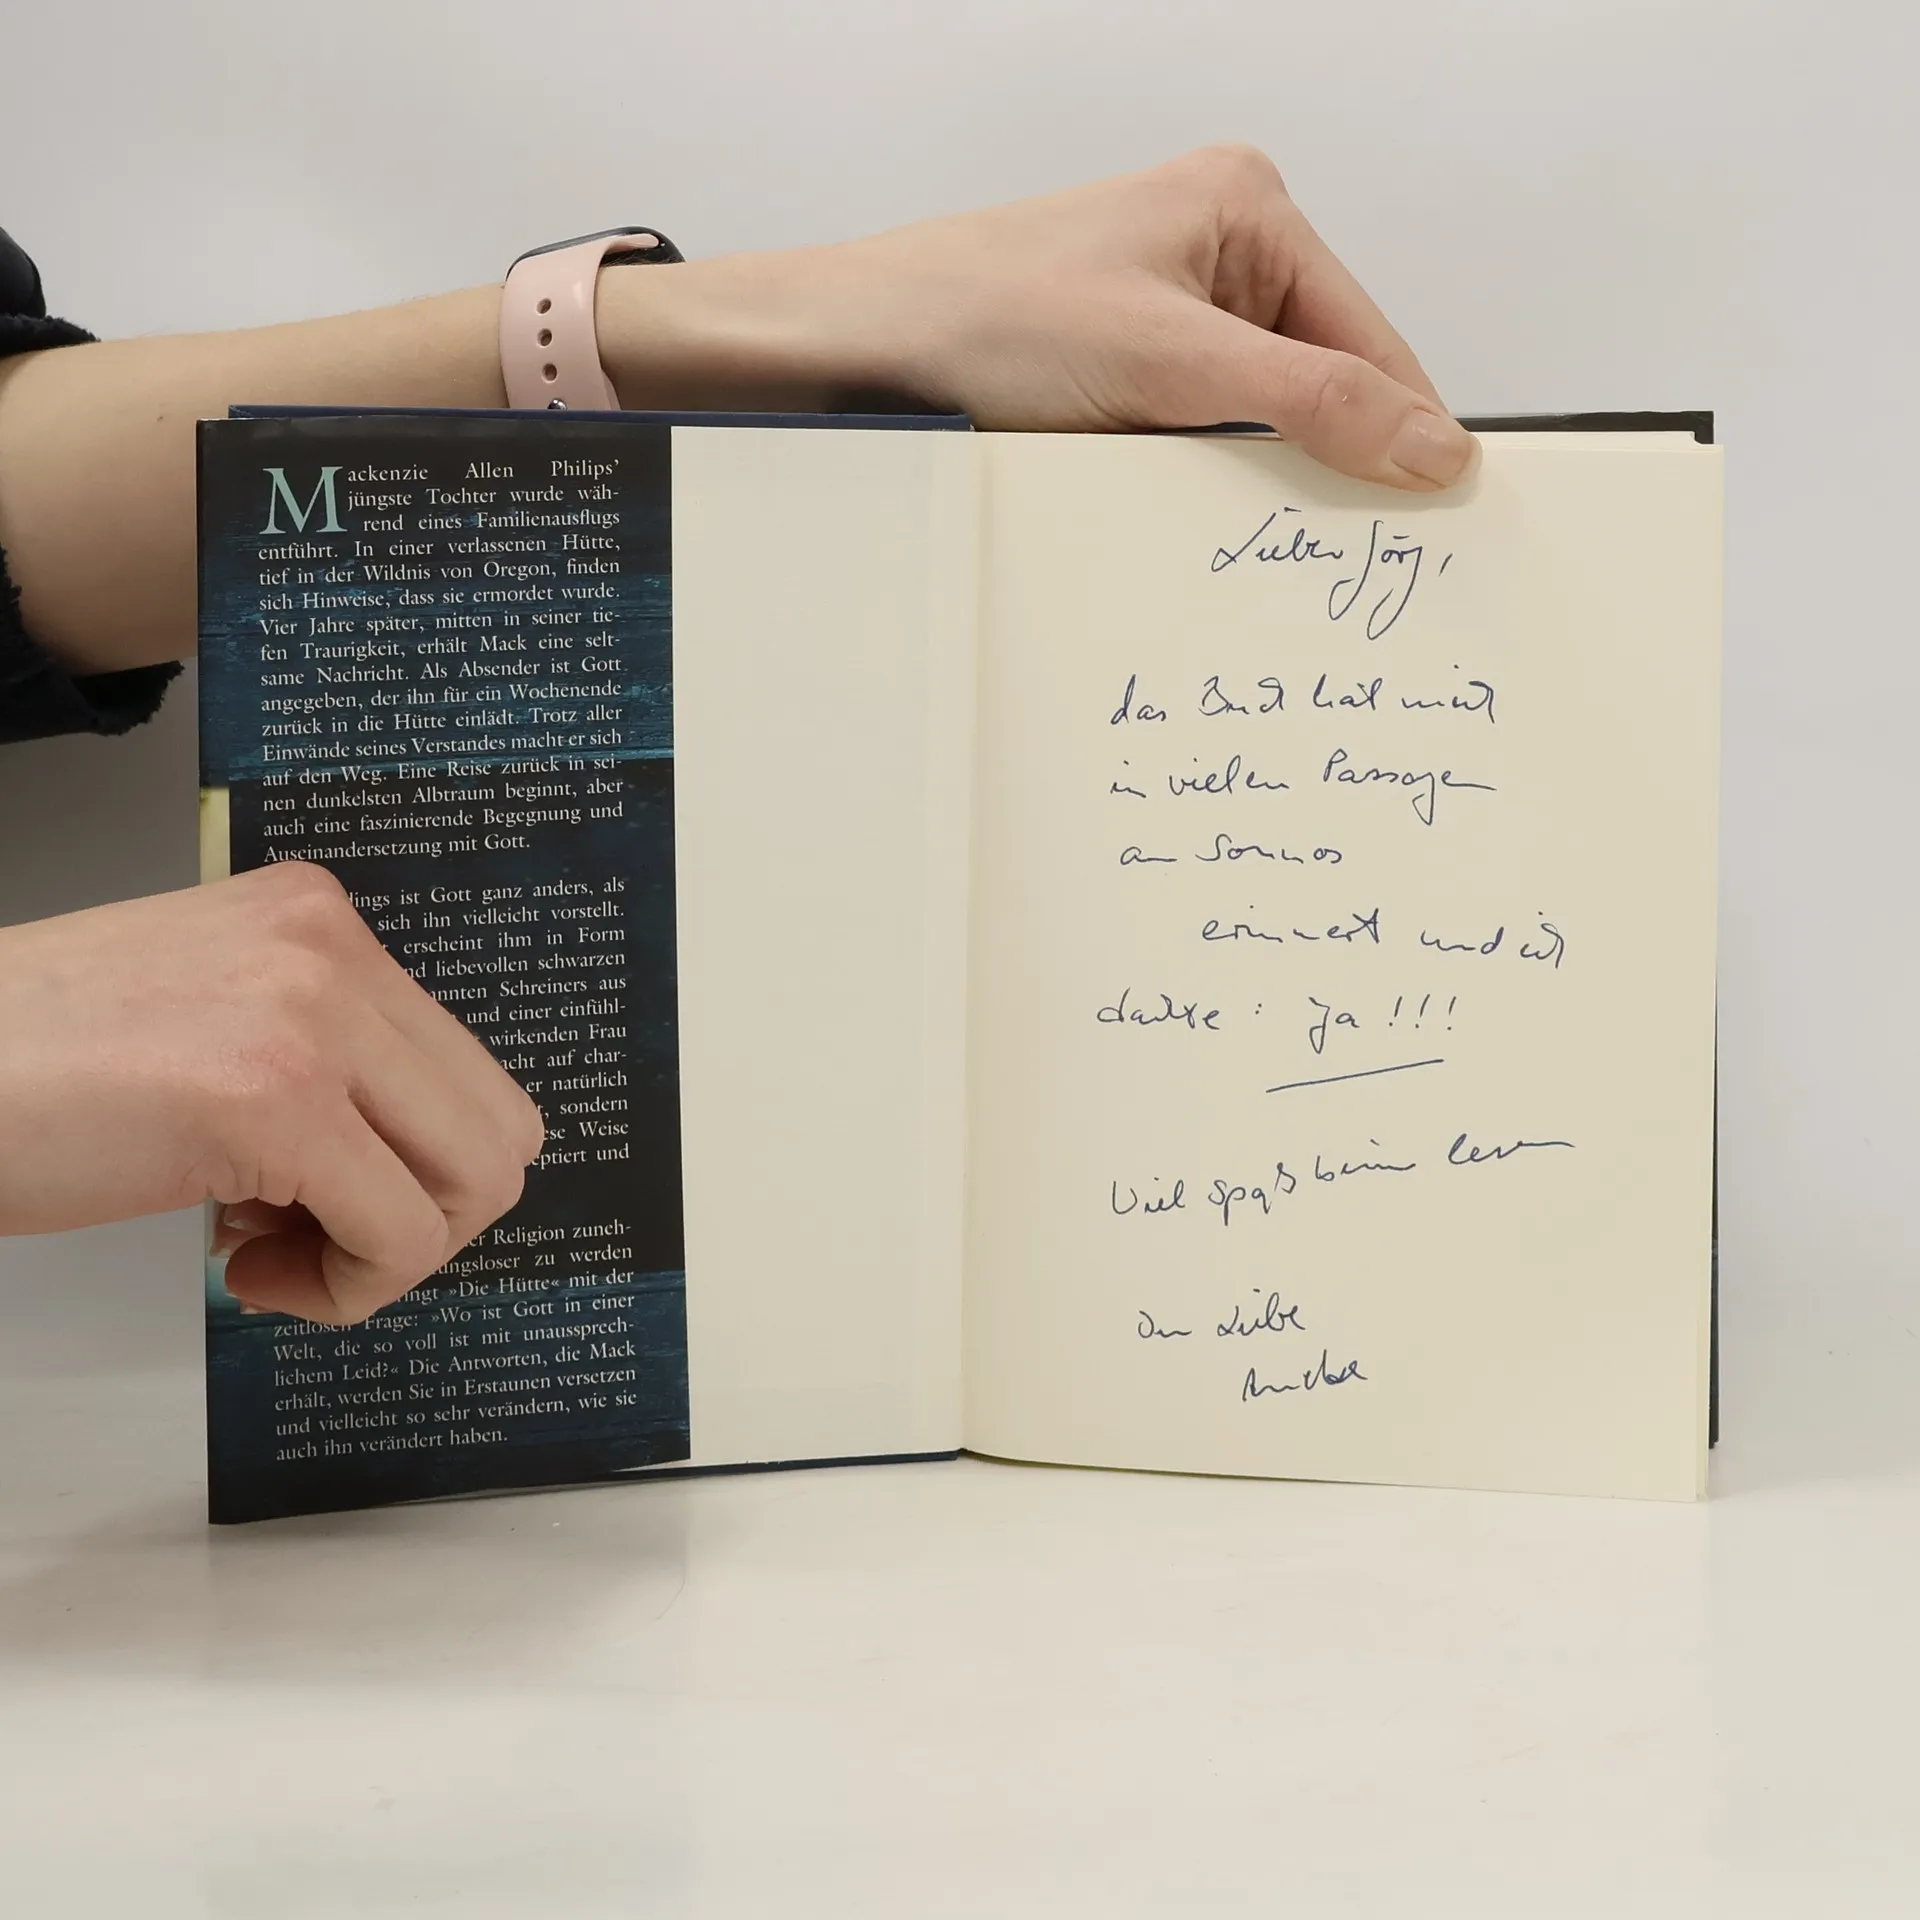 Mackenzie Allen Philips’
jüngste Tochter wurde wäh-
rend eines Familienausflugs
entführt. In einer verlassenen Hütte,
tief in der Wildnis von Oregon, finden
sich Hinweise, dass sie ermordet wurde.
Vier Jahre später, mitten in seiner tie-
fen Traurigkeit, erhält Mack eine selt-
same Nachricht. Als Absender ist Gott
angegeben, der ihn für ein Wochenende
zurück in die Hütte einlädt. Trotz aller
Einwände seines Verstandes macht er sich
auf den Weg. Eine Reise zurück in sei-
nen dunkelsten Albtraum beginnt, aber
auch eine faszinierende Begegnung und
Auseinandersetzung mit Gott.
ist Gott ganz anders, als
sich ihn vielleicht vorstellt.
erscheint ihm in Form
liebevollen schwarzen
Schreiners aus
und einer einfühl-
wirkenden Frau
auf char-
er natürlich
sondern
Weise
und
Religion zuneh-
zu werden
»Die Hütte« mit der
zeitlosen Frage: »Wo ist Gott in einer
Welt, die so voll ist mit unaussprech-
lichem Leid?« Die Antworten, die Mack
erhält, werden Sie in Erstaunen versetzen
und vielleicht so sehr verändern, wie sie
auch ihn verändert haben.
Lieber Jörg,
das Buch hat mich
in vielen Passagen
an
erinnert und ich
danke : Ja !!!
Viel Spaß beim lesen
In Liebe